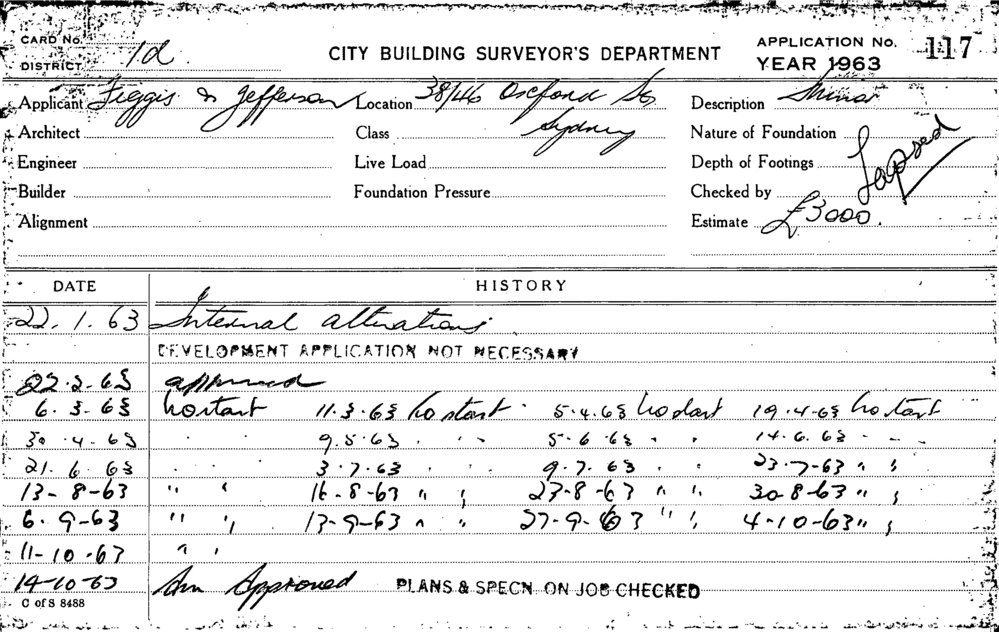 CARD No.
DISTRICT 1d
CITY BUILDING SURVEYOR'S DEPARTMENT
APPLICATION No. 117
YEAR 1963
Applicant Figgis & Jefferson Location 38/46 Oxford St Description Minor
Architect Class Sydney Nature of Foundation
Engineer Live Load Depth of Footings Lapsed
Builder Foundation Pressure Checked by
Alignment Estimate £3000.
DATE HISTORY
22.1.63 Internal alterations
DEVELOPMENT APPLICATION NOT NECESSARY
22.2.63 approved
6.3.63 No start 11.3.63 No start 5.4.63 No start 19.4.63 No start
30.4.63 " " 9.5.63 " " 5.6.63 " " 14.6.63 " "
21.6.63 " " 3.7.63 " " 9.7.63 " " 23-7-63 " "
13-8-63 " " 16-8-63 " " 23-8-63 " " 30-8-63 " "
6-9-63 " " 13-9-63 " " 27-9-63 " " 4-10-63 " "
11-10-63 " "
14-10-63 Approved PLANS & SPECN. ON JOB CHECKED
C of S 8488